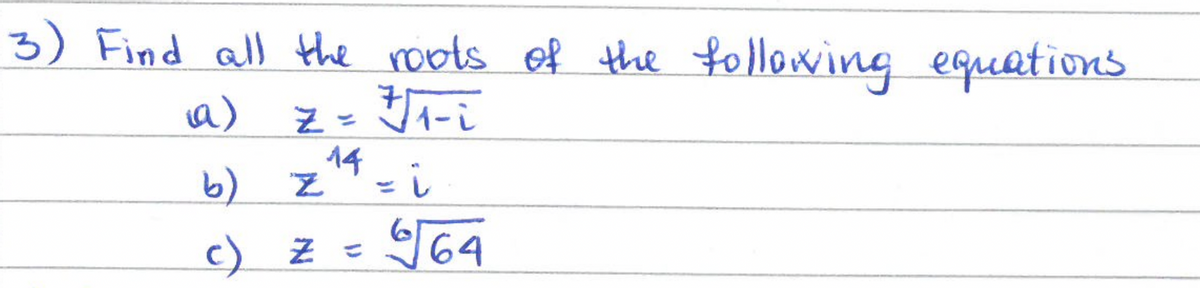 3) Find all the roots of the following equations
a) z = ⁷√1-i
b) z¹⁴ = i
c) z = ⁶√64